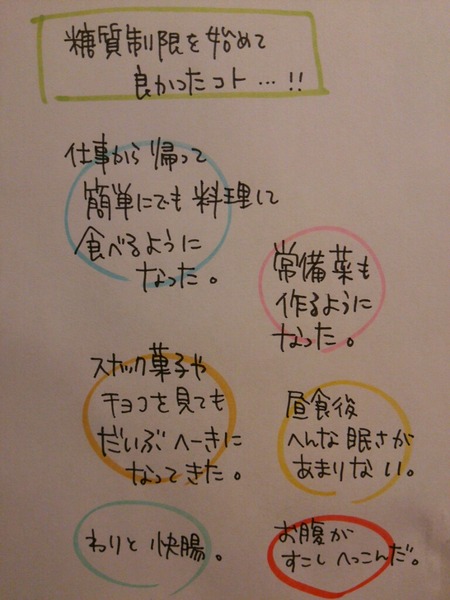 糖質制限を始めて
良かったコト…!!
仕事から帰って
簡単にでも料理して
食べるように
なった。
常備菜も
作るように
なった。
スナック菓子や
チョコを見ても
だいぶへーきに
なってきた。
昼食後
へんな眠さが
あまりない。
わりと快腸。
お腹が
すこしへっこんだ。